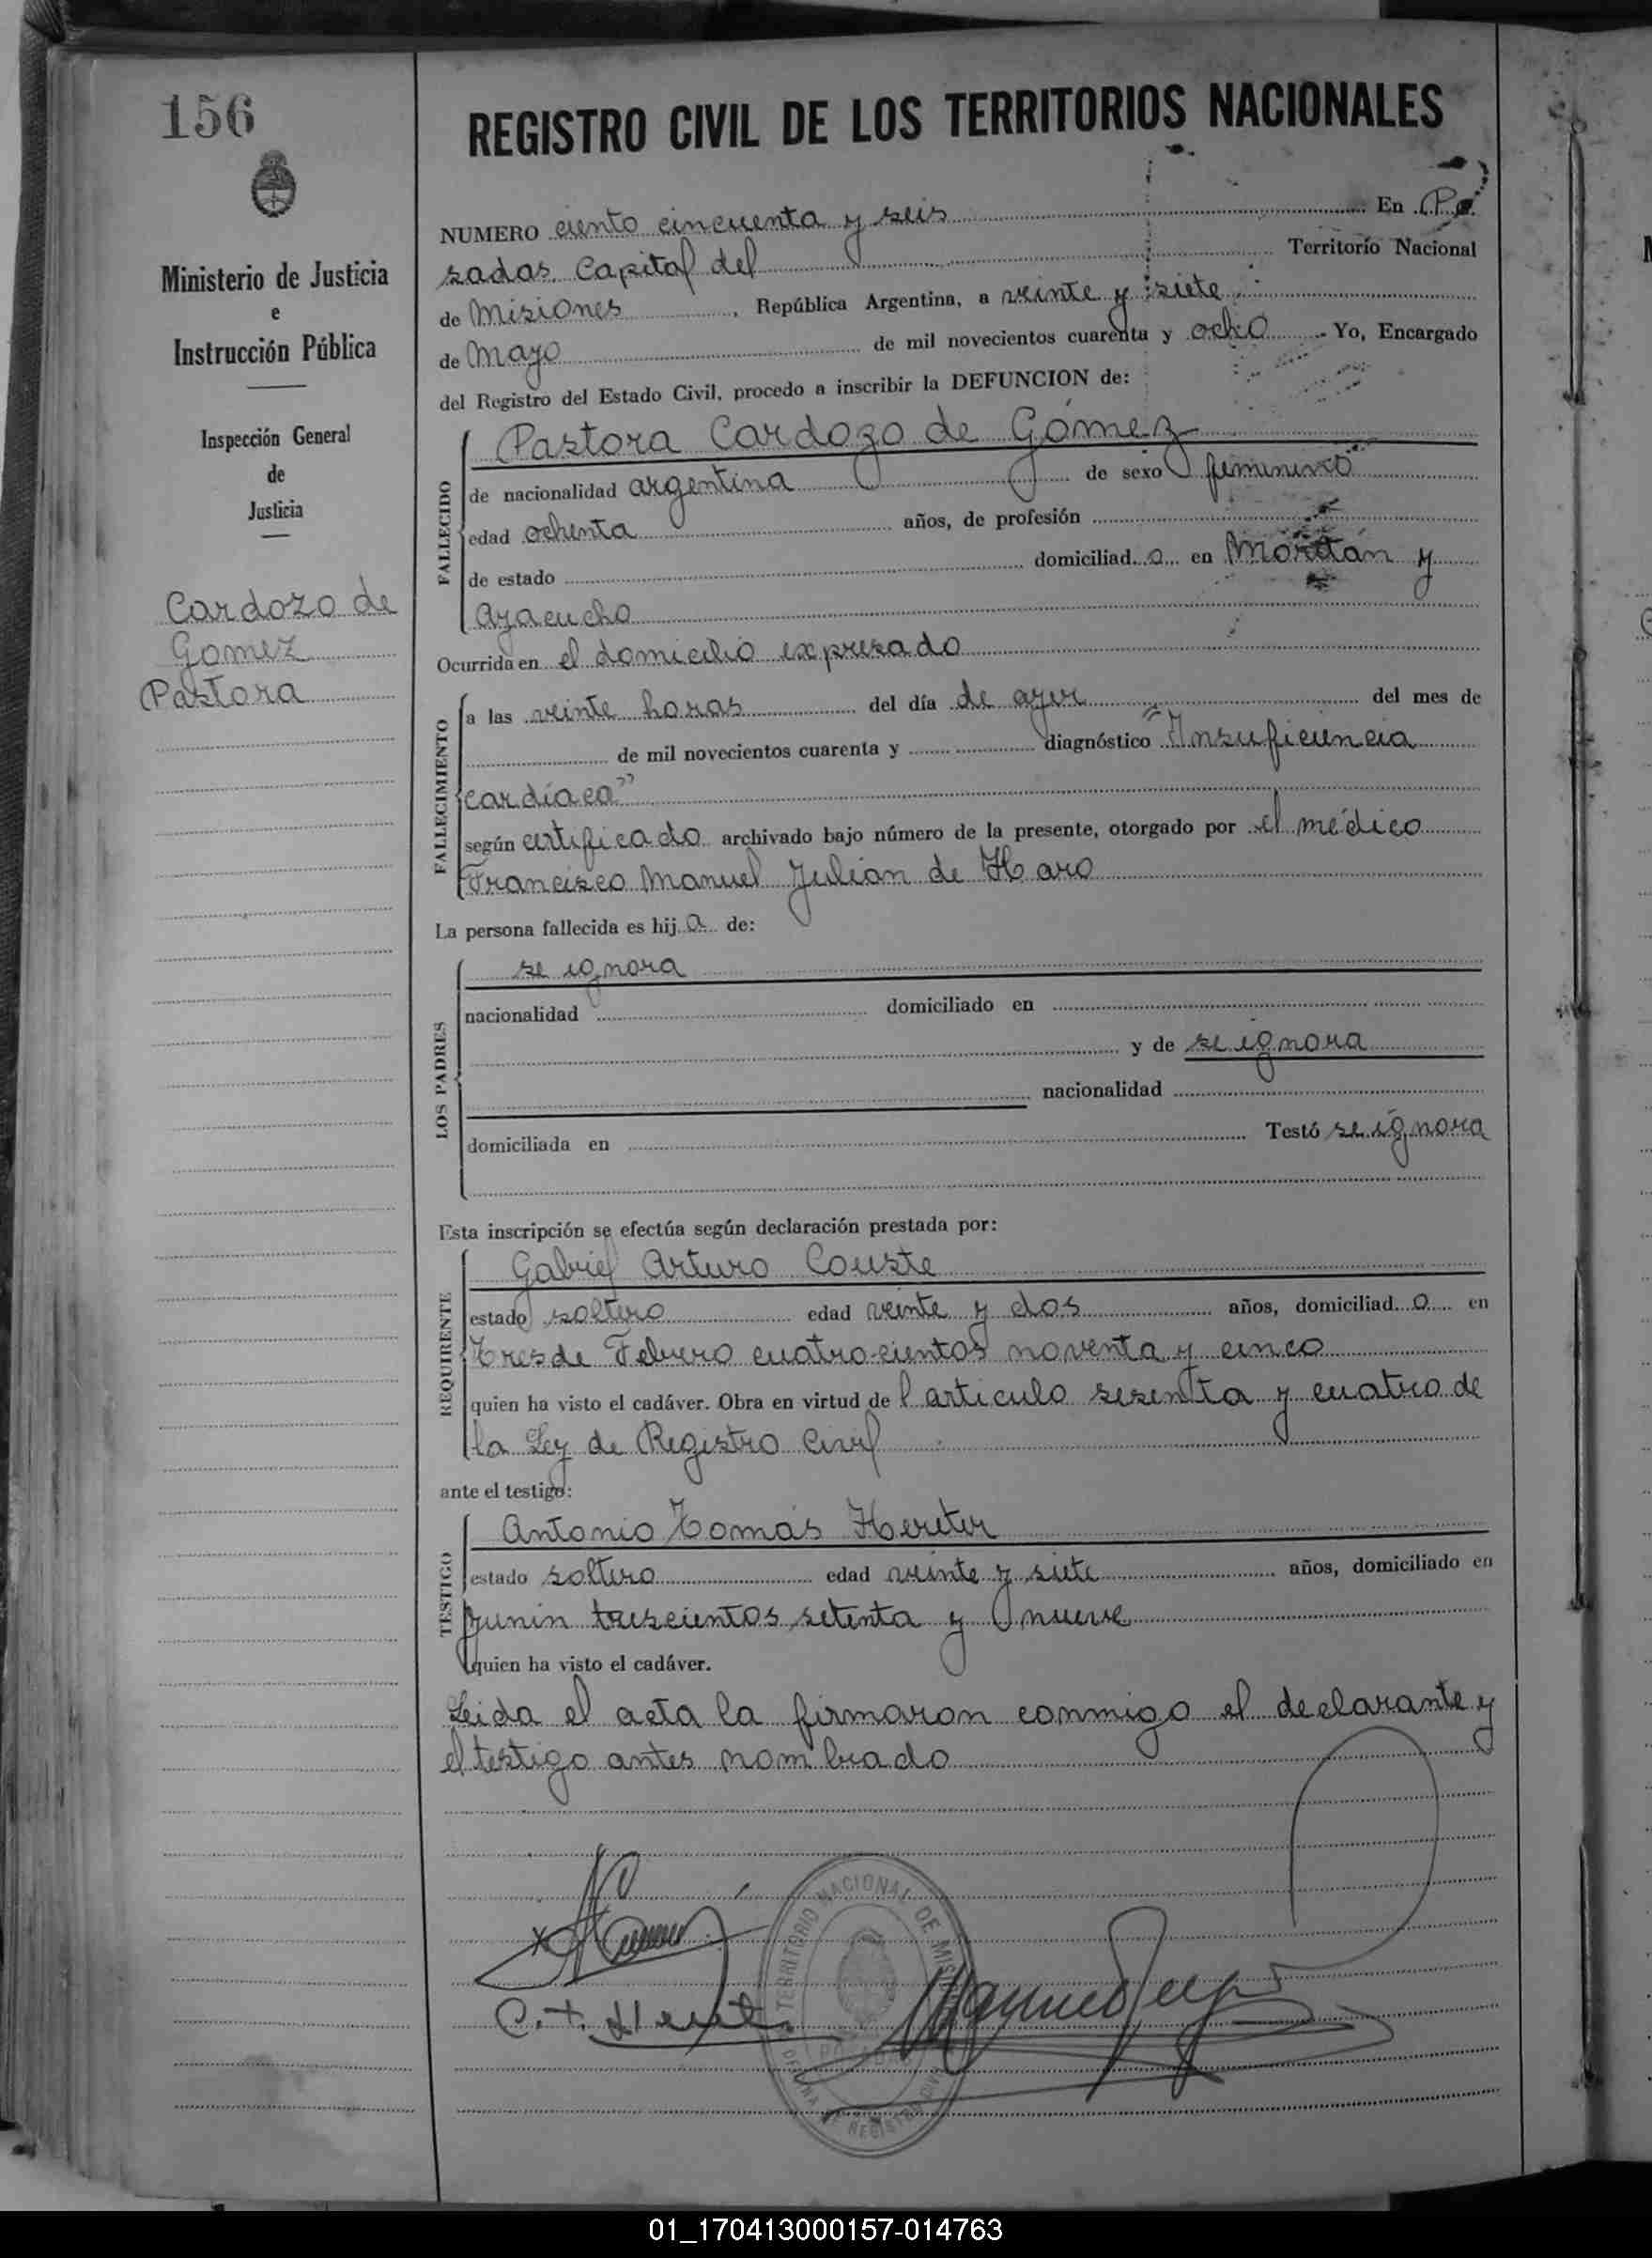 156
Ministerio de Justicia
e
Instrucción Pública
Inspección General
de
Justicia
Cardozo de
Gomez
Pastora
REGISTRO CIVIL DE LOS TERRITORIOS NACIONALES
NUMERO ciento cincuenta y seis En Po
sadas Capital del Territorio Nacional
de Misiones, República Argentina, a veinte y siete
de Mayo de mil novecientos cuarenta y ocho. Yo, Encargado
del Registro del Estado Civil, procedo a inscribir la DEFUNCION de:
FALLECIDO
Pastora Cardozo de Gómez
de nacionalidad argentina de sexo femenino
edad ochenta años, de profesión
de estado domiciliad a en y
Ayacucho
Ocurrida en el domicilio expresado
FALLECIMIENTO
a las veinte horas del día de ayer del mes de
de mil novecientos cuarenta y diagnóstico "Insuficiencia
cardíaca"
según certificado archivado bajo número de la presente, otorgado por el médico
Francisco Manuel Julian de Haro
La persona fallecida es hij a de:
LOS PADRES
se ignora
nacionalidad domiciliado en
y de se ignora
nacionalidad
domiciliada en Testó se ignora
Esta inscripción se efectúa según declaración prestada por:
REQUIRENTE
Gabriel Arturo Couste
estado soltero edad veinte y dos años, domiciliad o en
Tres de Febrero cuatrocientos noventa y cinco
quien ha visto el cadáver. Obra en virtud de l articulo sesenta y cuatro de
la Ley de Registro Civil
ante el testigo:
TESTIGO
Antonio Tomás Hereter
estado soltero edad veinte y siete años, domiciliado en
Junin trescientos setenta y nueve
quien ha visto el cadáver.
Leida el acta la firmaron conmigo el declarante y
el testigo antes nombrado
TERRITORIO NACIONAL DE MISIONES
01_170413000157-014763